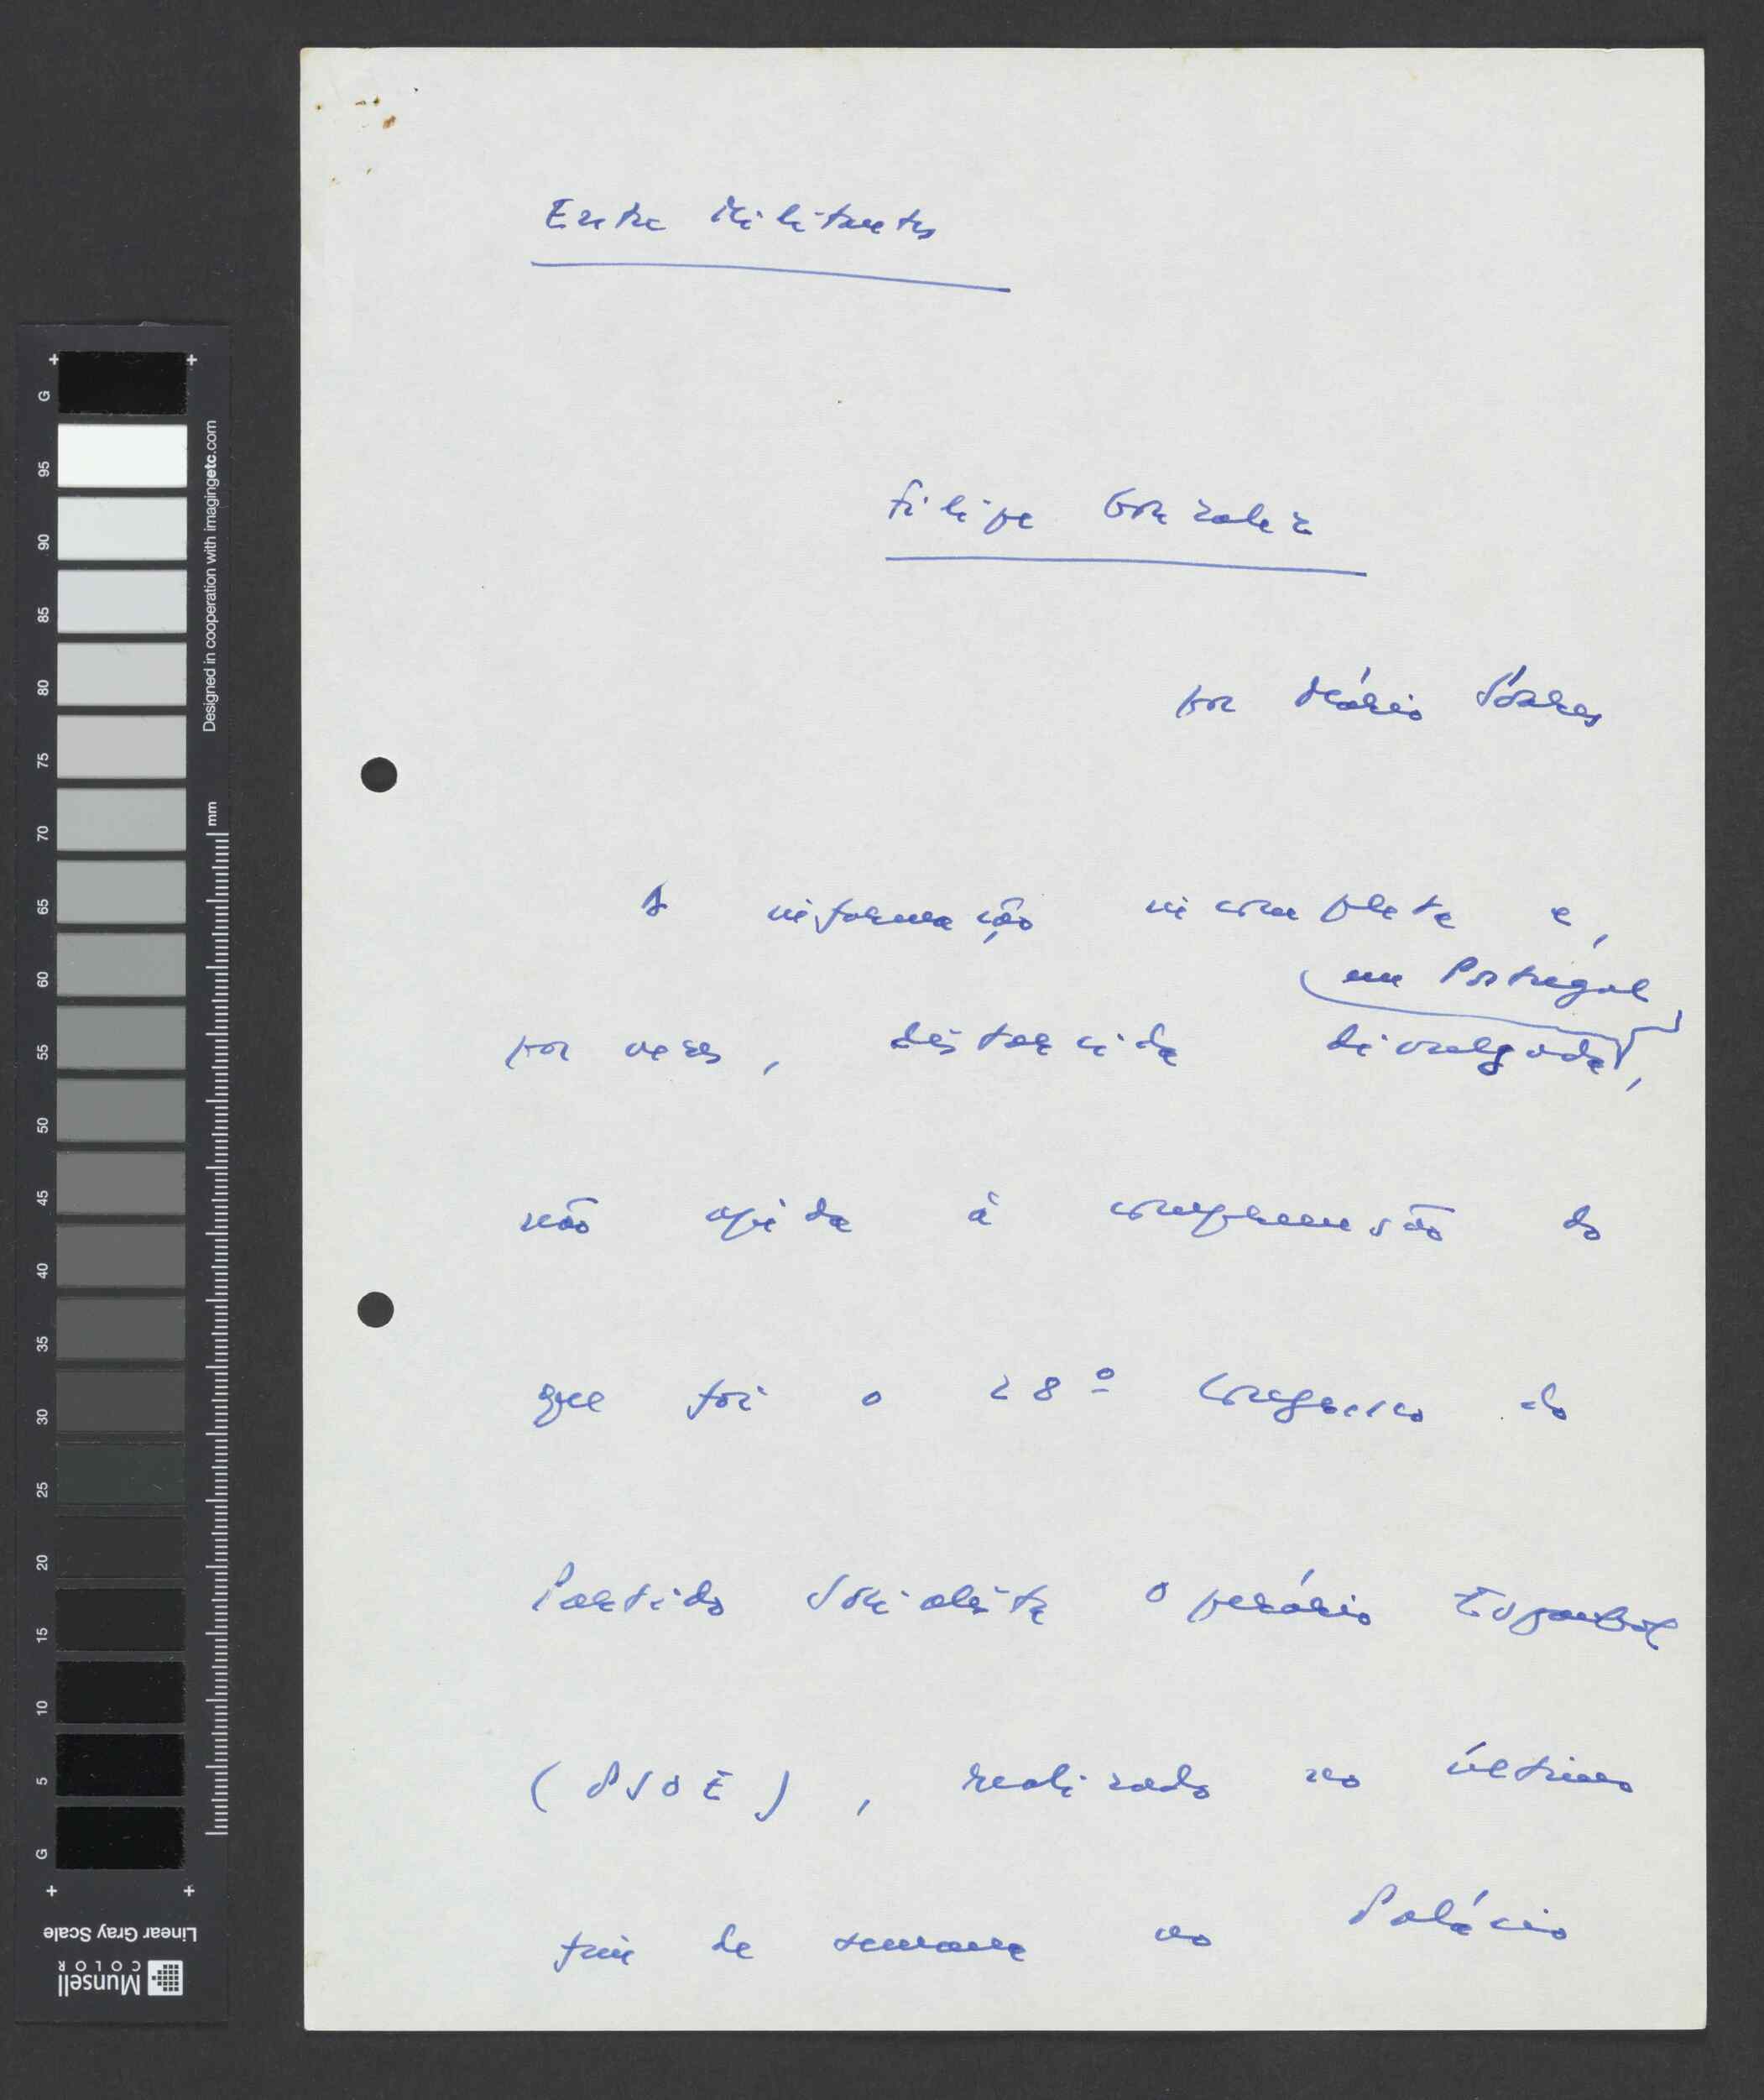 Entre Militantes
Filipe Gonzalez
por Mário Soares
A informação incompleta e,
em Portugal
por vezes, distorcida divulgada,
não ajuda à compreensão do
que foi o 28º Congresso do
Partido Socialista Operário Espanhol
(PSOE), realizado no último
fim de semana no Palácio
G
95
90
85
80
75
70
65
60
55
50
45
40
35
30
25
20
15
10
5
G
mm
Designed in cooperation with imagingetc.com
Linear Gray Scale
Munsell
COLOR